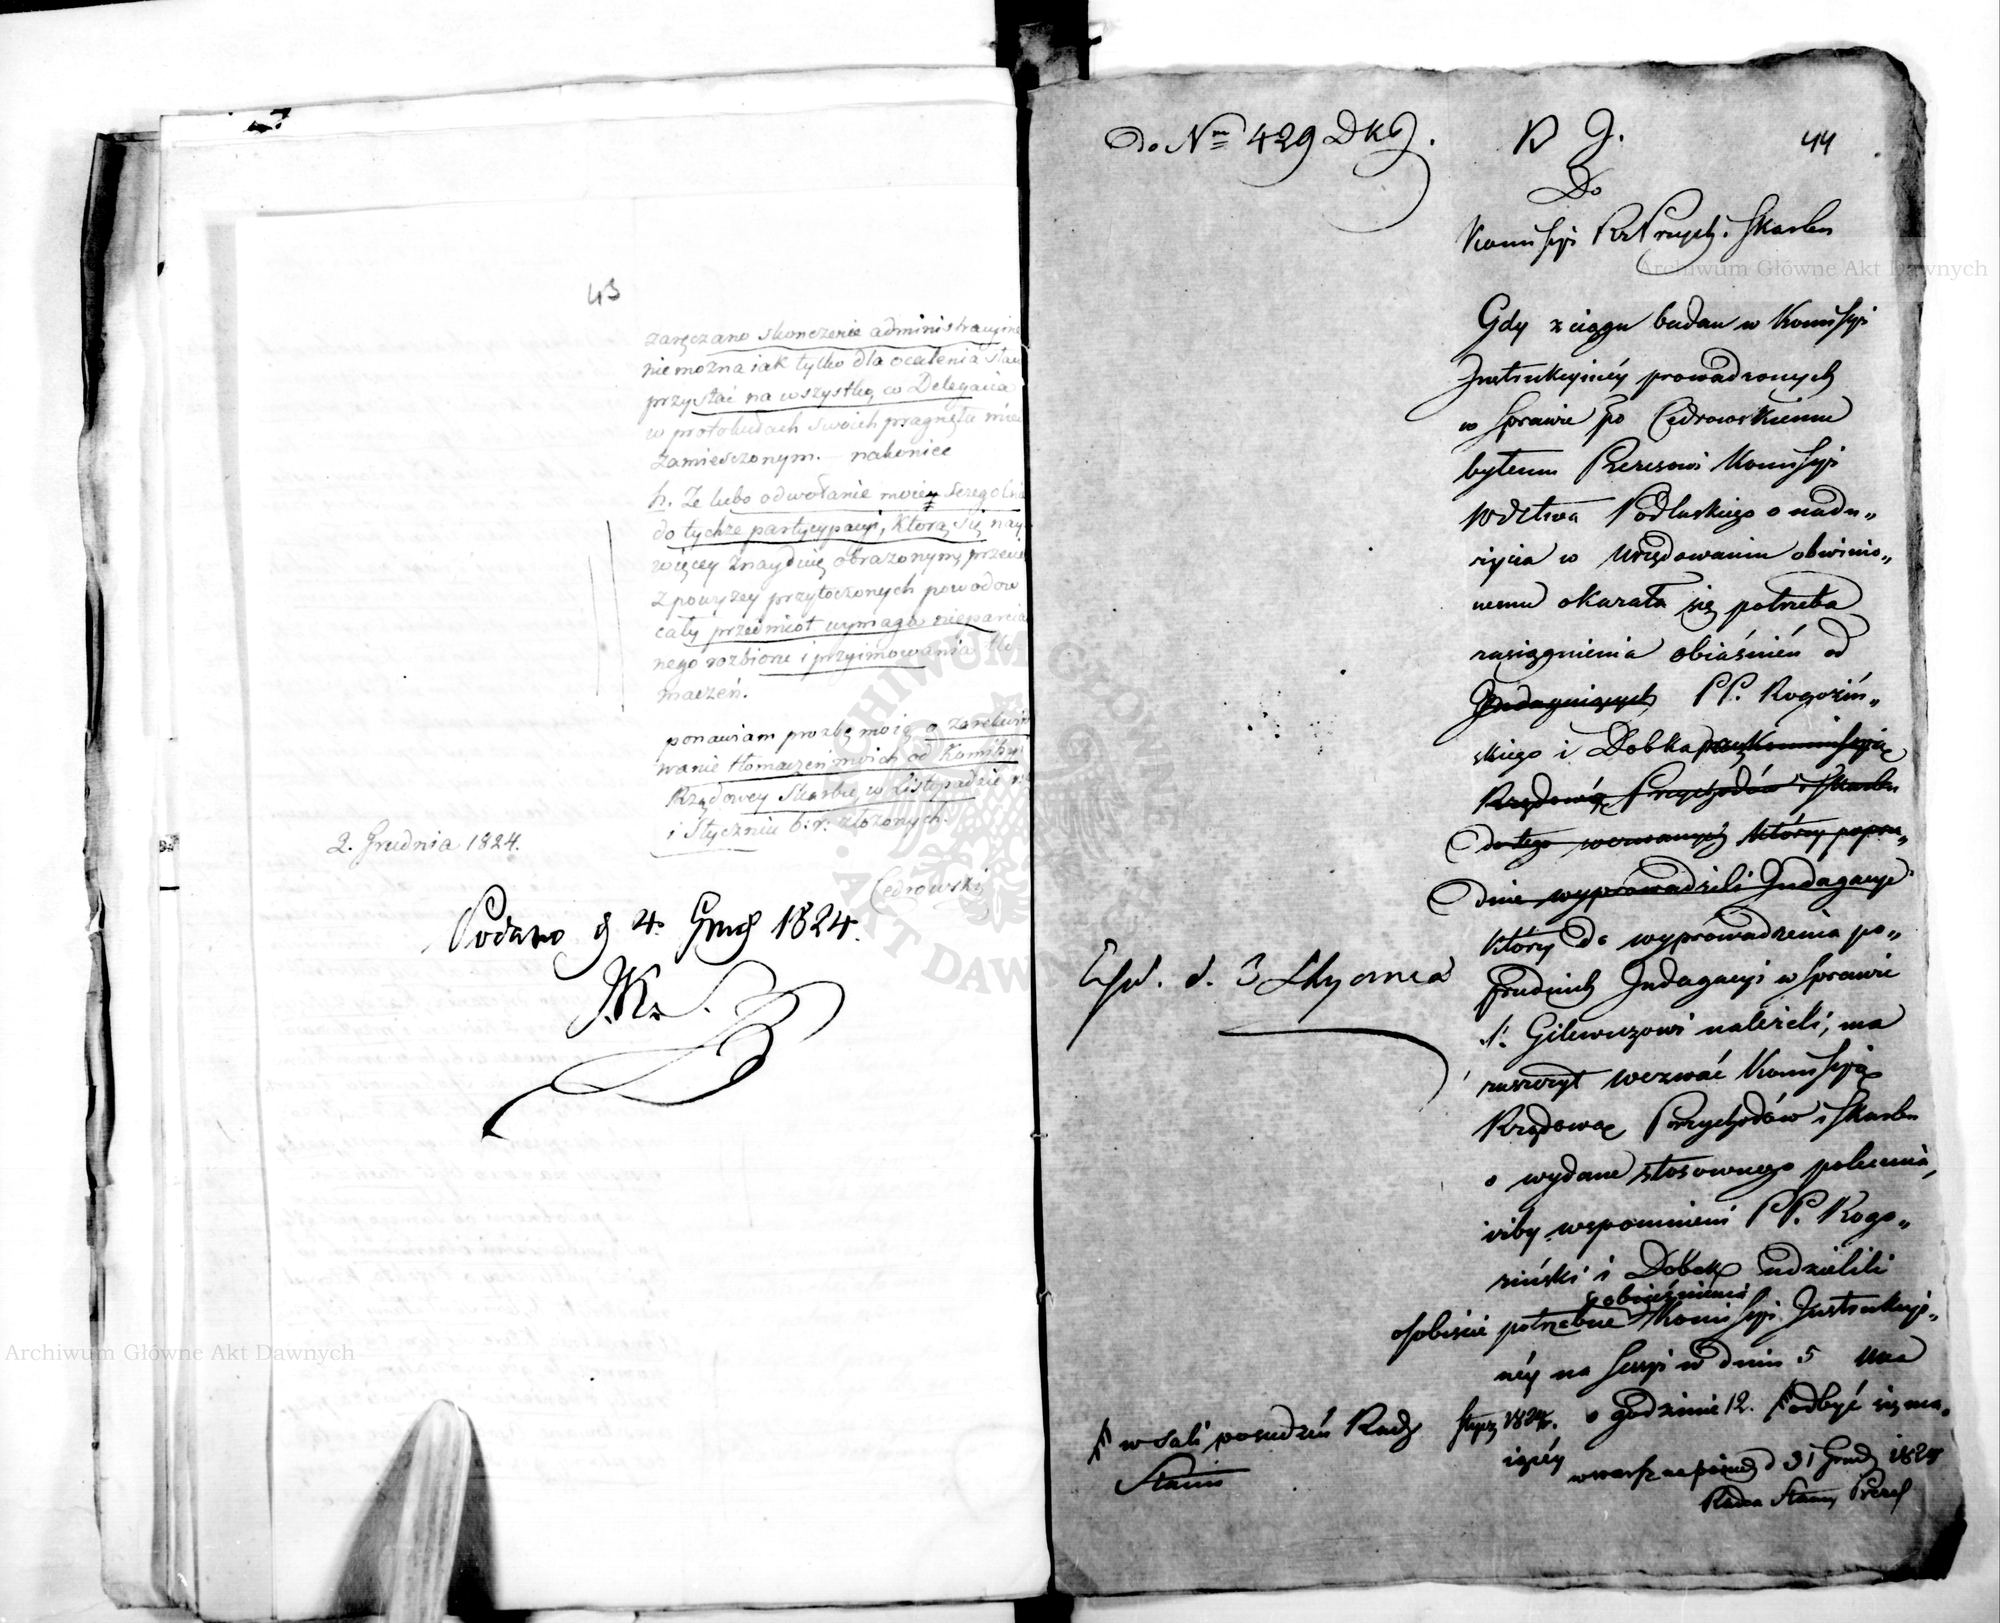 43
zaręczano skonczenie administracyine
nie można iak tylko dla ocalenia
przystać na wszystko, co Delegacia
w protokułach swoich pragnęła
zamieszczonym. – nakoniec
h. Ze lubo odwołanie moie szczególnie
do tychże partycypacyi, którą się nay
więcey znayduię obrażonym,
z powyzey przytoczonych powodow
cały przedmiot wymaga nieparcial
nego rozbioru i przyimowania tło
maczeń.
ponawiam prozbę moię o zarekwiro
wanie tłomaczeń moich od Kommissyi
Rządowey Skarbu, w Listopadzie
i Styczniu b: r: złożonych.
2. Grudnia 1824.
Cedrowski
Podano d 4. Grud 1824.
Do Nru 429 DKJ.
K J.
44
Do
Kommissyi Rz Przych. i Skarbu
Gdy z ciągu badań w Kommissyi
Instrukcyinéy prowadzonych
w Sprawie po Cedrowskiemu
byłemu Prezesowi Kommissyi
Wdztwa Podlaskiego o nadu„
życia w Urzędowaniu obwinio„
nemu okazała się potrzeba
zasiągnienia obiaśnień od
Indaguiących PP. Rogoziń„
skiego i Dobka przez Kommissyią
Rządową Przychodów i Skarbu
do tego wezwanych którzy poprze„
dnie wyprowadzili Indagacye
którzy do wyprowadzenia po„
przednich Indagacyi w Sprawie
Gilewiczowi należeli, ma
zaszczyt wezwać Kommissyią
Rządową Przychodów i Skarbu
o wydanie stosownego polecenia,
iżby wspomnieni PP. Rogo„
ziński i Dobek udzielili
obiaśnienia
osobiście potrzebne Kommissyi Instrukcyi„
néy na Sessyi w dniu 5 Mca
Stycz 1824. o godzinie 12. odbyć się ma„
iącéy
w sali posiedzeń Rady
Stanu
Exp. d. 3 Stycznia
w Warsz na posied d 31 Grud 1824
Radca Stanu Prezes
Archiwum Główne Akt Dawnych
Archiwum Główne Akt Dawnych
ARCHIWUM GŁÓWNE AKT DAWNYCH